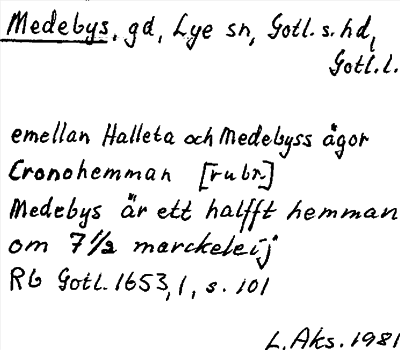 Medebys, gd, Lye sn, Gotl. s. hd,
Gotl. l.
emellan Halleta och Medebyss ägor
Cronohemman [rubr.]
Medebys är ett halfft hemman
om 7 1/2 marckeleij
Rb Gotl. 1653, 1, s. 101
L. Aks. 1981